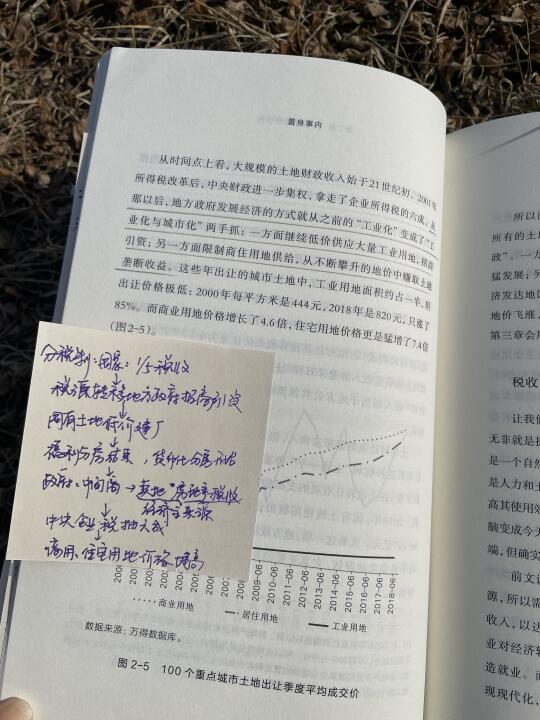 置身事内
从时间点上看，大规模的土地财政收入始于21世纪初。2001年
所得税改革后，中央财政进一步集权，拿走了企业所得税的六成。从
那以后，地方政府发展经济的方式就从之前的“工业化”变成了“工
业化与城市化”两手抓：一方面继续低价供应大量工业用地，招商
引资；另一方面限制商住用地供给，从不断攀升的地价中赚取土地
垄断收益。这些年出让的城市土地中，工业用地面积约占一半，但
出让价格极低：2000年每平方米是444元，2018年是820元，只涨了
85%。而商业用地价格增长了4.6倍，住宅用地价格更是猛增了7.4倍
（图2-5）。
分税制：国家：1/5税收
地方政府招商引资
国有土地低价建厂
福利分房结束，货币化分房开始
政府：中间商→卖地
税收
来源
中央企业税抽六成
商用、住宅用地价格增高
2009-06
2010-06
2011-06
2012-06
2013-06
2014-06
2015-06
2016-06
2017-06
2018-06
商业用地 居住用地 工业用地
数据来源：万得数据库。
图 2-5 100个重点城市土地出让季度平均成交价
所以
所有的土
政”。一方
猛发展；另
济发达地区
地价飞涨，
第三章会
税收
让我们
无非就是
是一个自然
是人力和土
高其使用效
脑变成今天
端，但确实
前文
源，所以需
收入，以达
业对经济
造就业。而
现现代化，